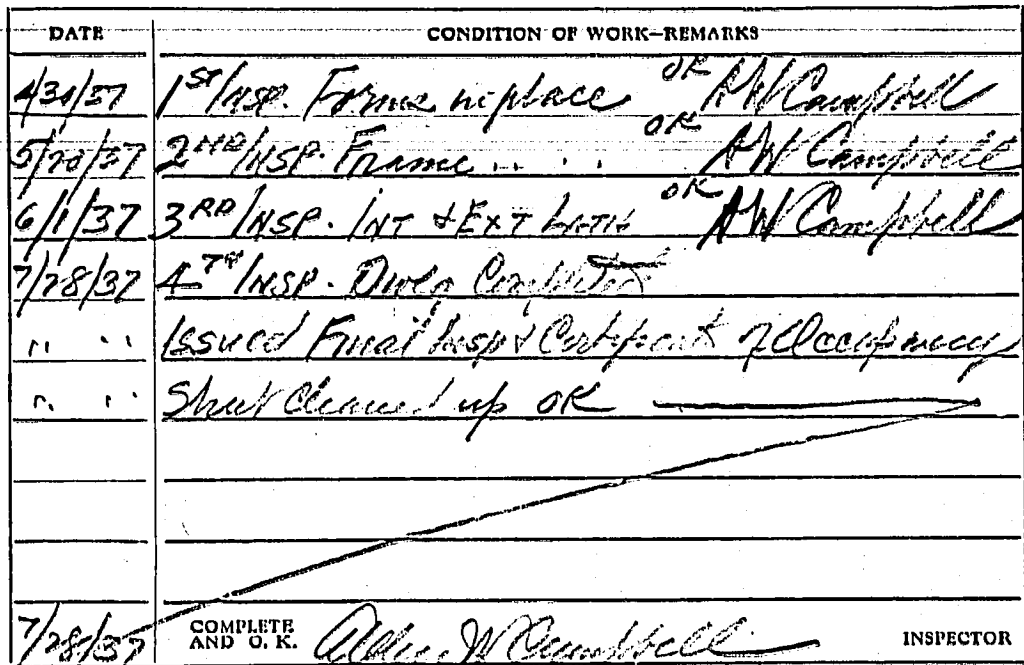 DATE CONDITION OF WORK—REMARKS
4/30/37 1ST INSP. Forms in place OK AW Campbell
5/20/37 2ND INSP. Frame " " OK AW Campbell
6/1/37 3RD INSP. INT & EXT LATH OK AW Campbell
7/28/37 4TH INSP. Dwelg Completed
" " Issued Final Insp & Certificate of Occupancy
" " Street Cleaned up OK
7/28/37 COMPLETE AND O. K. W Campbell INSPECTOR